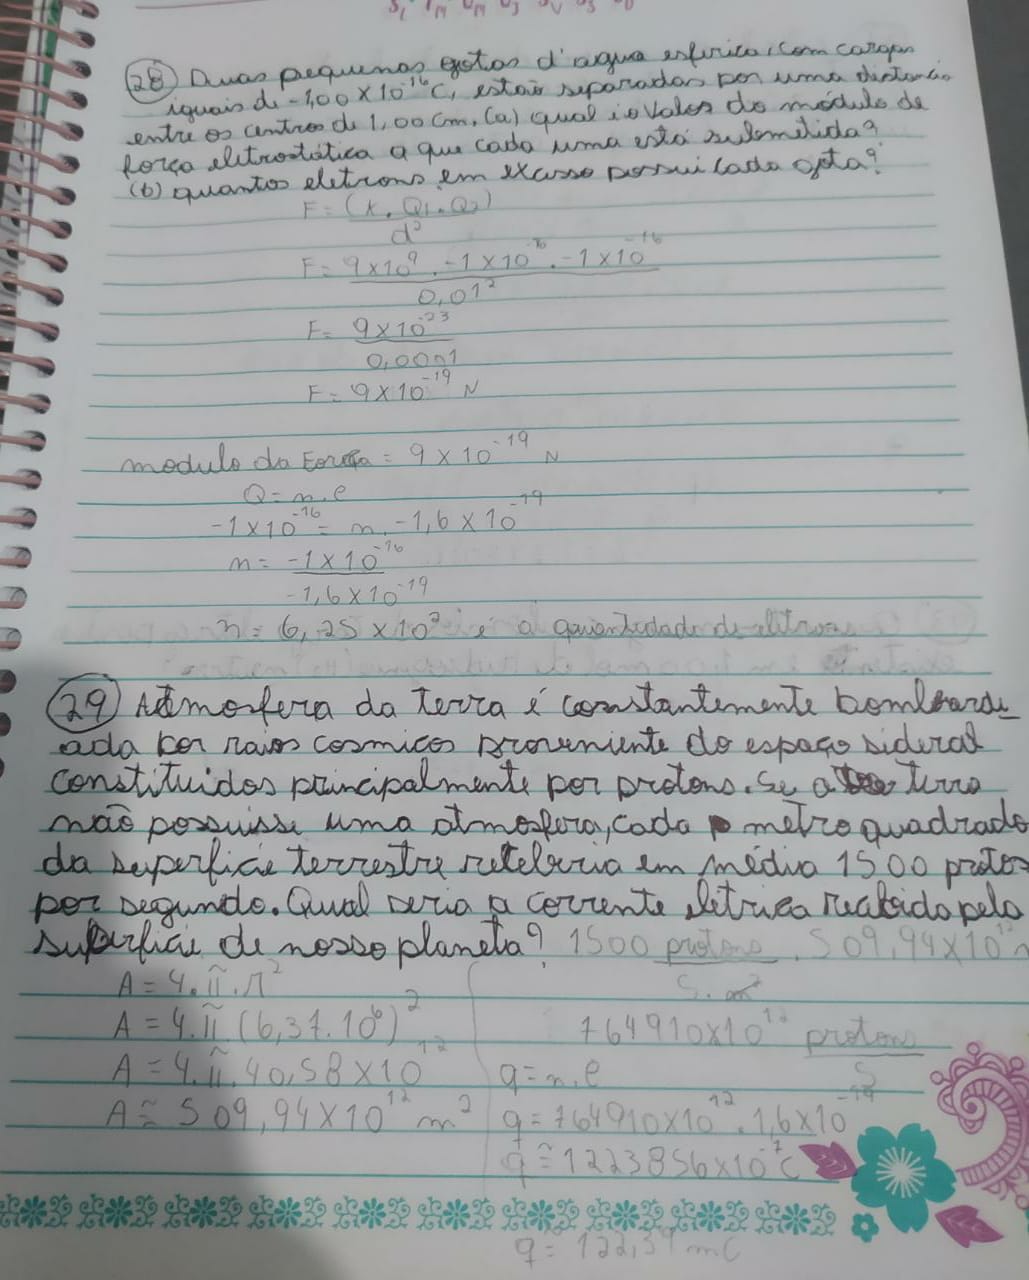 (28) Duas pequenas gotas d'agua esferica, com cargas
iguais de -1,00 x 10⁻¹⁶ C, estão separadas por uma distancia
entre os centros de 1,00 cm. (a) qual é o Valor do módulo de
força eletrostática a que cada uma está submetida?
(b) quantos eletrons em excesso possui cada gota?
F = (K. Q1. Q2)
d²
F = 9 x 10⁹ . -1 x 10⁻¹⁶ . -1 x 10⁻¹⁶
0,01²
F = 9 x 10⁻²³
0,0001
F = 9 x 10⁻¹⁹ N
modulo da Força = 9 x 10⁻¹⁹ N
Q = n.e
-1 x 10⁻¹⁶ = n. -1,6 x 10⁻¹⁹
n = -1 x 10⁻¹⁶
-1,6 x 10⁻¹⁹
n = 6,25 x 10² é a quantidade de eletrons
(29) Atmosfera da terra é constantemente bombarde
ada por raios cosmicos proveniente do espaço sideral
constituidos principalmente por protons. Se a terra
não possuisse uma atmosfera, cada metro quadrado
da superficie terrestre receberia em média 1500 protos
por segundo. Qual seria a corrente eletrica recebida pela
superficie de nosso planeta? 1500 protons . 509,94 x 10¹² m
s. m²
A = 4.π.r²
A = 4.π (6,37.10⁶)²
764910 x 10¹² protons
s
A = 4.π.40,58 x 10¹²
q = n.e
A ≈ 509,94 x 10¹² m²
q = 764910 x 10¹² . 1,6 x 10⁻¹⁹
q ≈ 1223856 x 10⁻⁷ C
q = 122,39 mC